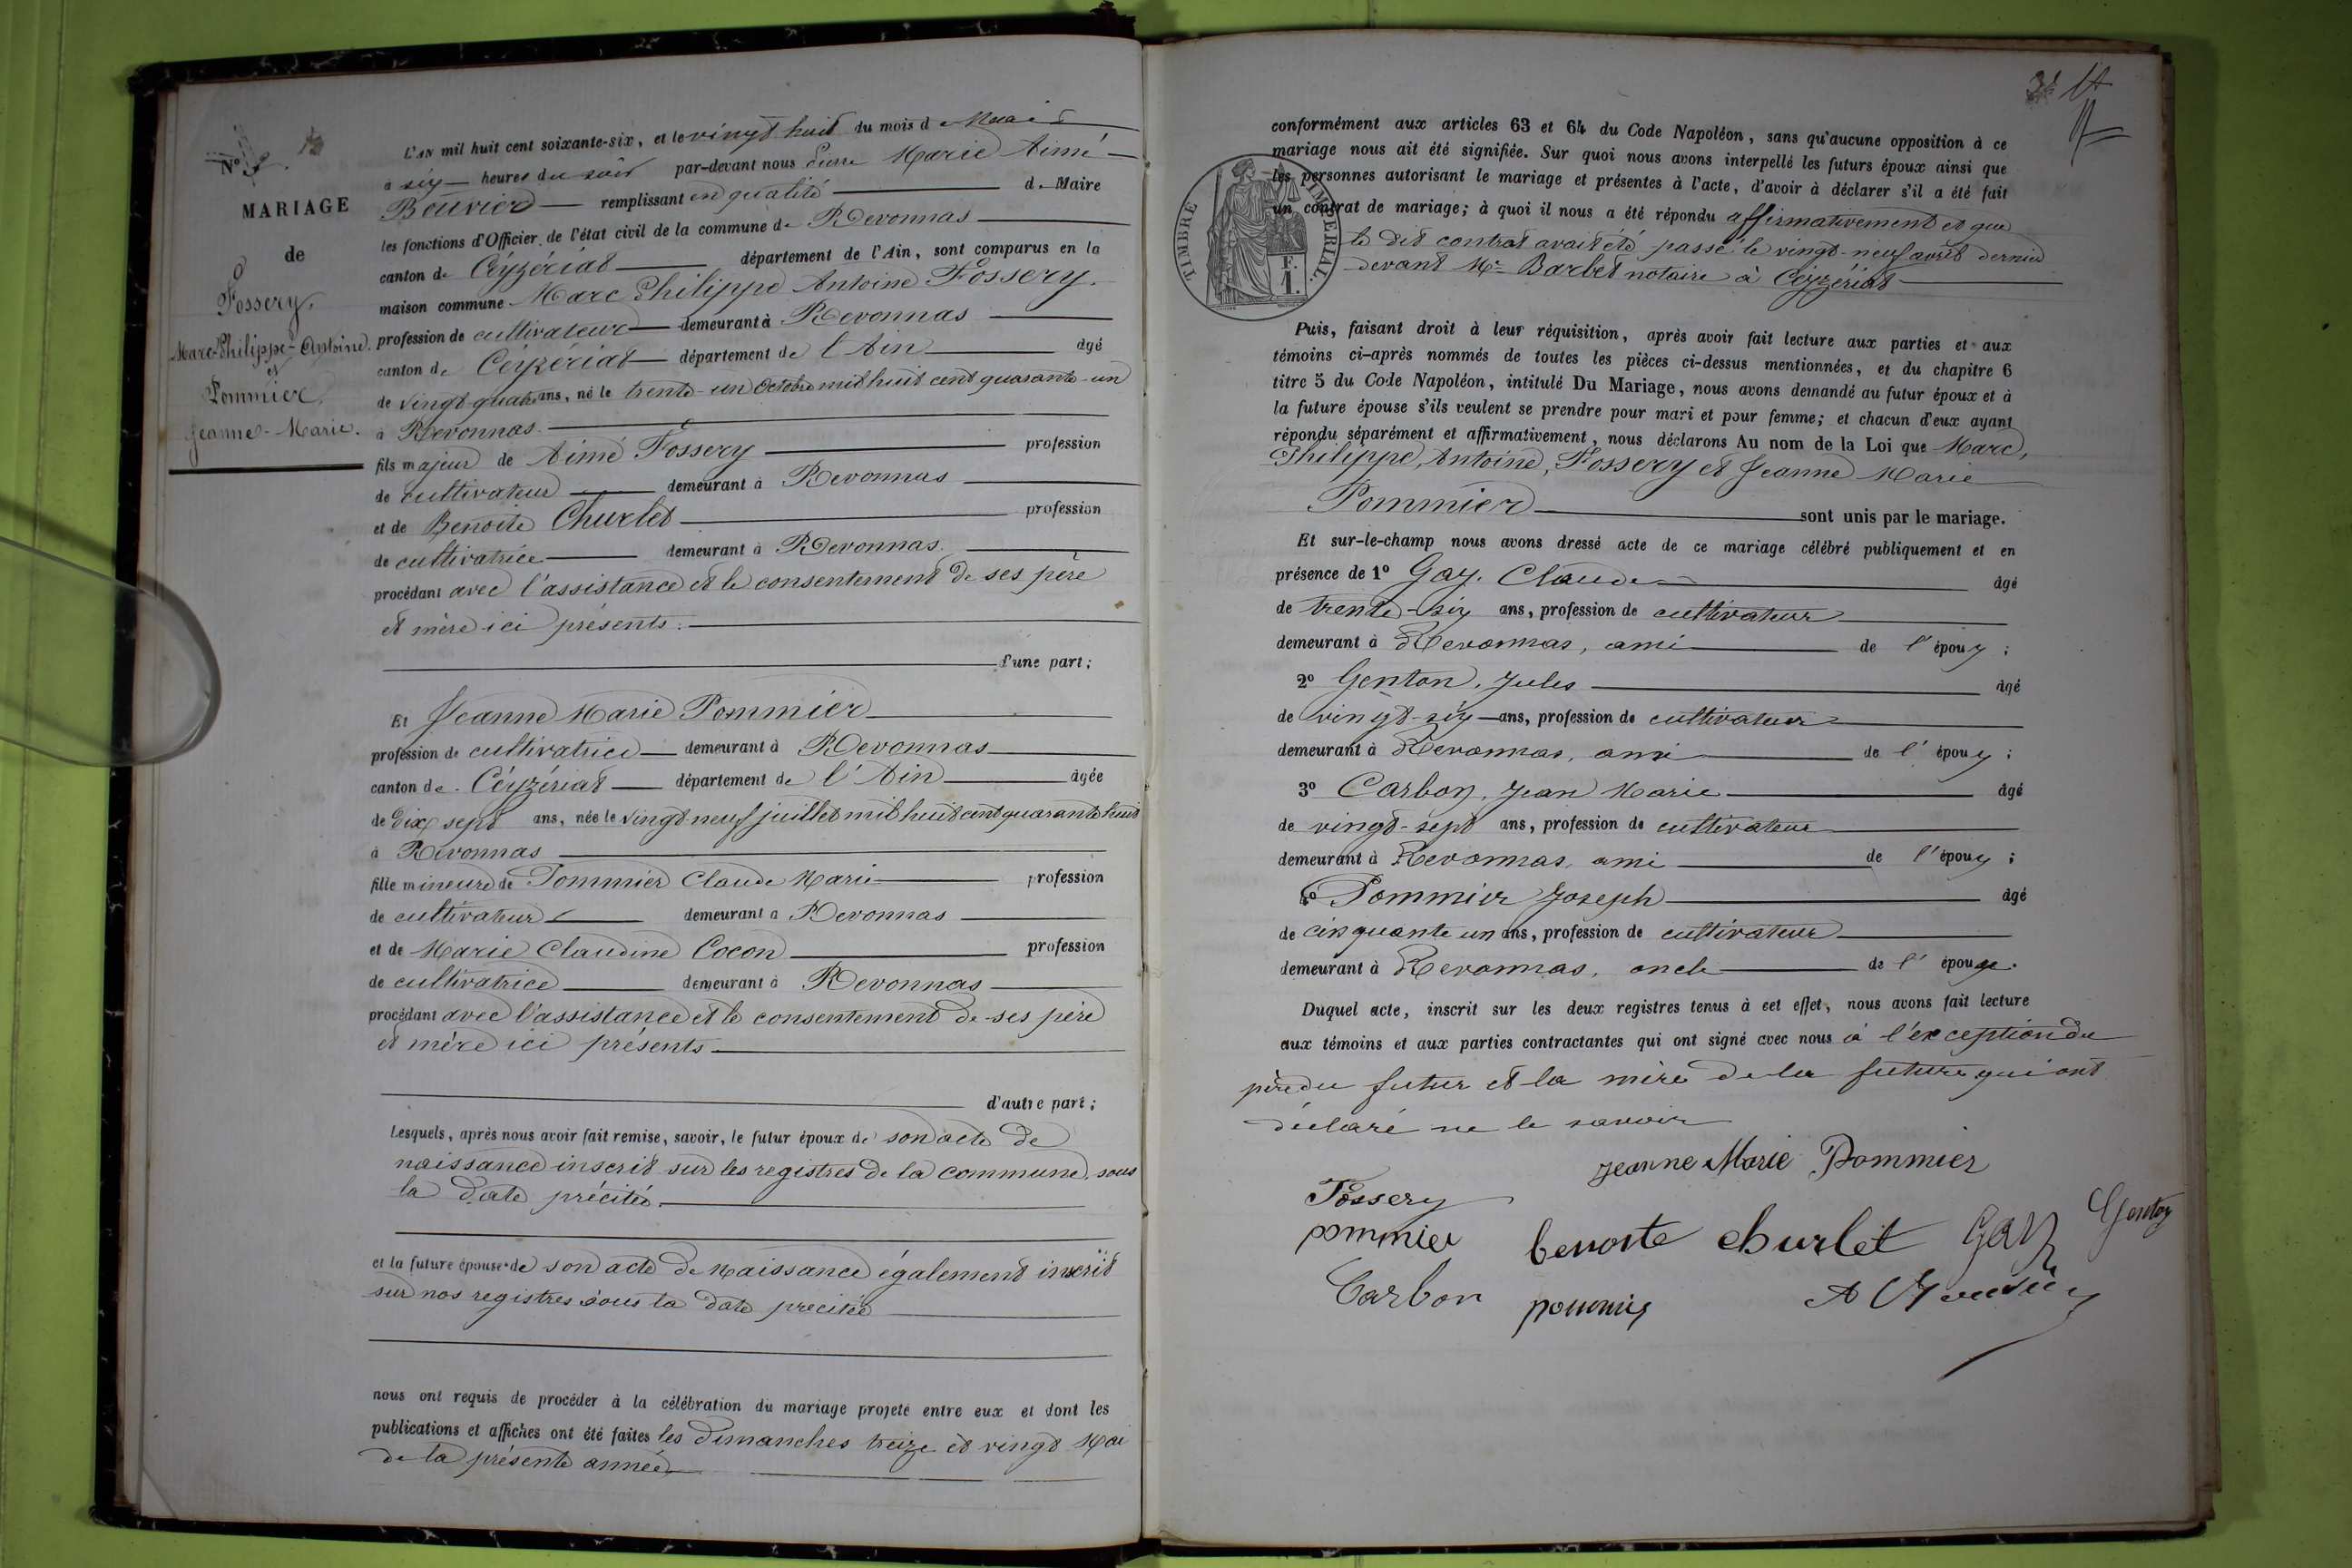 N° 3.
MARIAGE
de
Fossery,
Marc-Philippe-Antoine.
et
Pommier,
Jeanne-Marie.
L'AN mil huit cent soixante-six, et le vingt huit du mois de Mai
à six heures du soir par-devant nous Pierre Marie Aimé
Bouvier remplissant en qualité de Maire
les fonctions d'Officier de l'état civil de la commune de Revonnas
canton de Céyzériat département de l'Ain, sont comparus en la
maison commune Marc Philippe Antoine Fossery.
profession de cultivateur demeurant à Revonnas
canton de Céyzériat département de l'Ain âgé
de vingt-quatre ans, né le trente-un Octobre mil huit cent quarante-un
à Revonnas
fils majeur de Aimé Fossery profession
de cultivateur demeurant à Revonnas
et de Benoite Churlet profession
de cultivatrice demeurant à Revonnas.
procédant avec l'assistance et le consentement de ses père
et mère ici présents.
d'une part;
Et Jeanne Marie Pommier
profession de cultivatrice demeurant à Revonnas
canton de Céyzériat département de l'Ain âgée
de Dix sept ans, née le vingt-neuf juillet mil huit cent quarante huit
à Revonnas
fille mineure de Pommier Claude Marie profession
de cultivateur demeurant à Revonnas
et de Marie Claudine Cocon profession
de cultivatrice demeurant à Revonnas
procédant avec l'assistance et le consentement de ses père
et mère ici présents
d'autre part;
Lesquels, après nous avoir fait remise, savoir, le futur époux de son acte de
naissance inscrit sur les registres de la commune, sous
la date précitée.
et la future épouse de son acte de naissance également inscrit
sur nos registres sous la date precitée
nous ont requis de procéder à la célébration du mariage projeté entre eux et dont les
publications et affiches ont été faites les dimanches treize et vingt Mai
de la présente année
conformément aux articles 63 et 64 du Code Napoléon, sans qu'aucune opposition à ce
mariage nous ait été signifiée. Sur quoi nous avons interpellé les futurs époux ainsi que
les personnes autorisant le mariage et présentes à l'acte, d'avoir à déclarer s'il a été fait
un contrat de mariage; à quoi il nous a été répondu affirmativement et que
le dit contrat avait été passé le vingt-neuf avril dernier
devant Me Barbet notaire à Céyzériat
TIMBRE IMPERIAL.
F.
1.
Puis, faisant droit à leur réquisition, après avoir fait lecture aux parties et aux
témoins ci-après nommés de toutes les pièces ci-dessus mentionnées, et du chapitre 6
titre 5 du Code Napoléon, intitulé Du Mariage, nous avons demandé au futur époux et à
la future épouse s'ils veulent se prendre pour mari et pour femme; et chacun d'eux ayant
répondu séparément et affirmativement, nous déclarons Au nom de la Loi que Marc,
Philippe, Antoine, Fossery et Jeanne Marie
Pommier sont unis par le mariage.
Et sur-le-champ nous avons dressé acte de ce mariage célébré publiquement et en
présence de 1° Gay. Claude âgé
de trente-six ans, profession de cultivateur
demeurant à Revonnas, ami de l'époux;
2° Genton, Jules âgé
de vingt-six ans, profession de cultivateur
demeurant à Revonnas, ami de l'époux;
3° Carbon, Jean Marie âgé
de vingt-sept ans, profession de cultivateur
demeurant à Revonnas, ami de l'époux;
4° Pommier Joseph âgé
de cinquante un ans, profession de cultivateur
demeurant à Revonnas, oncle de l'épouse.
Duquel acte, inscrit sur les deux registres tenus à cet effet, nous avons fait lecture
aux témoins et aux parties contractantes qui ont signé avec nous à l'exception du
père du futur et la mère de la future qui ont
déclaré ne le savoir
Jeanne Marie Pommier
Fossery
pommier benoite churlet Gay Genton
Carbon pommier